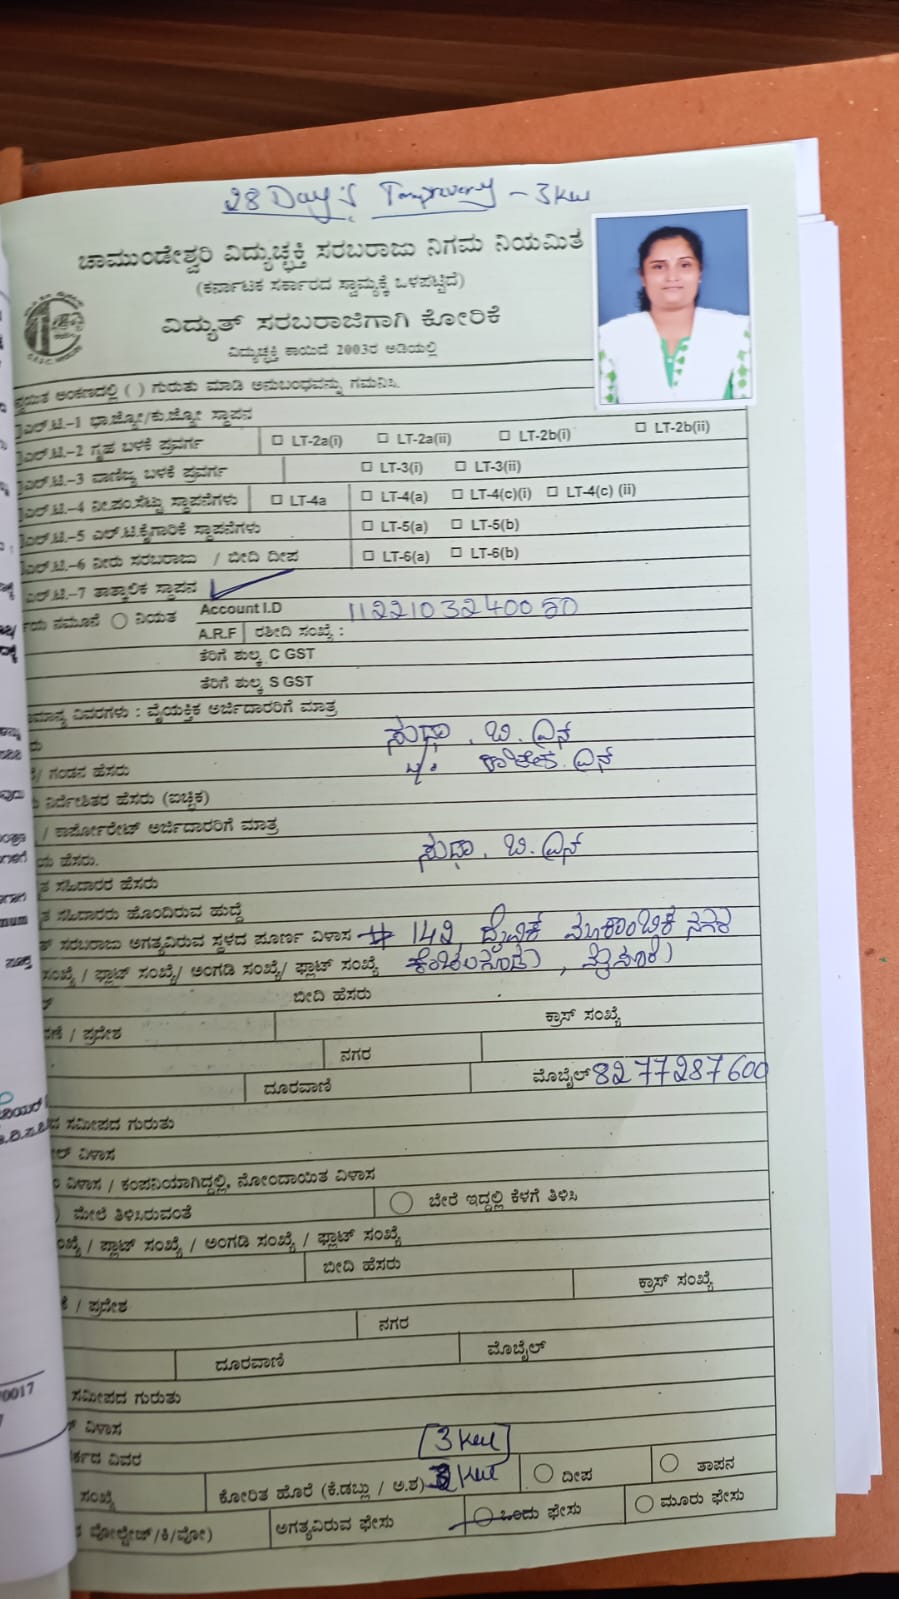 28 Day's Temprevery - 3 Kw
ಚಾಮುಂಡೇಶ್ವರಿ ವಿದ್ಯುಚ್ಛಕ್ತಿ ಸರಬರಾಜು ನಿಗಮ ನಿಯಮಿತ
(ಕರ್ನಾಟಕ ಸರ್ಕಾರದ ಸ್ವಾಮ್ಯಕ್ಕೆ ಒಳಪಟ್ಟಿದೆ)
ವಿದ್ಯುತ್ ಸರಬರಾಜಿಗಾಗಿ ಕೋರಿಕೆ
ವಿದ್ಯುಚ್ಛಕ್ತಿ ಕಾಯಿದೆ 2003ರ ಅಡಿಯಲ್ಲಿ
ಅಂಕಣದಲ್ಲಿ ( ) ಗುರುತು ಮಾಡಿ ಅನುಬಂಧವನ್ನು ಗಮನಿಸಿ.
ಎಲ್.ಟಿ.-1 ಭಾ.ಜ್ಯೋ/ಕು.ಜ್ಯೋ ಸ್ಥಾಪನ
ಎಲ್.ಟಿ.-2 ಗೃಹ ಬಳಕೆ ಪ್ರವರ್ಗ LT-2a(i) LT-2a(ii) LT-2b(i) LT-2b(ii)
ಎಲ್.ಟಿ.-3 ವಾಣಿಜ್ಯ ಬಳಕೆ ಪ್ರವರ್ಗ LT-3(i) LT-3(ii)
ಎಲ್.ಟಿ.-4 ನೀ.ಪಂ.ಸೆಟ್ಟು ಸ್ಥಾಪನೆಗಳು LT-4a LT-4(a) LT-4(c)(i) LT-4(c) (ii)
ಎಲ್.ಟಿ.-5 ಎಲ್.ಟಿ.ಕೈಗಾರಿಕೆ ಸ್ಥಾಪನೆಗಳು LT-5(a) LT-5(b)
ಎಲ್.ಟಿ.-6 ನೀರು ಸರಬರಾಜು / ಬೀದಿ ದೀಪ LT-6(a) LT-6(b)
ಎಲ್.ಟಿ.-7 ತಾತ್ಕಾಲಿಕ ಸ್ಥಾಪನ
ನಮೂನೆ ನಿಯತ Account I.D
A.R.F ರಶೀದಿ ಸಂಖ್ಯೆ :
ತೆರಿಗೆ ಶುಲ್ಕ C GST
ತೆರಿಗೆ ಶುಲ್ಕ S GST
ವಿವರಗಳು : ವೈಯಕ್ತಿಕ ಅರ್ಜಿದಾರರಿಗೆ ಮಾತ್ರ
ಸುಧಾ. ಬಿ. ಎನ್
/ ಗಂಡನ ಹೆಸರು
ನಿರ್ದೇಶಿತರ ಹೆಸರು (ಐಚ್ಛಿಕ)
/ ಕಾರ್ಪೋರೇಟ್ ಅರ್ಜಿದಾರರಿಗೆ ಮಾತ್ರ
ಹೆಸರು. ಸುಧಾ. ಬಿ. ಎನ್
ಸಹಿದಾರರ ಹೆಸರು
ಸಹಿದಾರರು ಹೊಂದಿರುವ ಹುದ್ದೆ
ಸರಬರಾಜು ಅಗತ್ಯವಿರುವ ಸ್ಥಳದ ಪೂರ್ಣ ವಿಳಾಸ # 142,
ಸಂಖ್ಯೆ / ಫ್ಲಾಟ್ ಸಂಖ್ಯೆ/ ಅಂಗಡಿ ಸಂಖ್ಯೆ/ ಫ್ಲಾಟ್ ಸಂಖ್ಯೆ
ಬೀದಿ ಹೆಸರು
/ ಪ್ರದೇಶ ಕ್ರಾಸ್ ಸಂಖ್ಯೆ
ನಗರ
ದೂರವಾಣಿ ಮೊಬೈಲ್ 8277287600
ಸಮೀಪದ ಗುರುತು
ವಿಳಾಸ
ವಿಳಾಸ / ಕಂಪನಿಯಾಗಿದ್ದಲ್ಲಿ, ನೋಂದಾಯಿತ ವಿಳಾಸ
ಮೇಲೆ ತಿಳಿಸಿರುವಂತೆ ಬೇರೆ ಇದ್ದಲ್ಲಿ ಕೆಳಗೆ ತಿಳಿಸಿ
/ ಪ್ಲಾಟ್ ಸಂಖ್ಯೆ / ಅಂಗಡಿ ಸಂಖ್ಯೆ / ಫ್ಲಾಟ್ ಸಂಖ್ಯೆ
ಬೀದಿ ಹೆಸರು
/ ಪ್ರದೇಶ ಕ್ರಾಸ್ ಸಂಖ್ಯೆ
ನಗರ
ದೂರವಾಣಿ ಮೊಬೈಲ್
ಸಮೀಪದ ಗುರುತು
ವಿಳಾಸ
ವಿವರ [3 Kw]
ಸಂಖ್ಯೆ ಕೋರಿತ ಹೊರೆ (ಕೆ.ಡಬ್ಲು / ಅ.ಶ) 3 Kw ದೀಪ ತಾಪನ
ವೋಲ್ಟೇಜ್/ಕಿ/ವೋ) ಅಗತ್ಯವಿರುವ ಫೇಸು ಒಂದು ಫೇಸು ಮೂರು ಫೇಸು